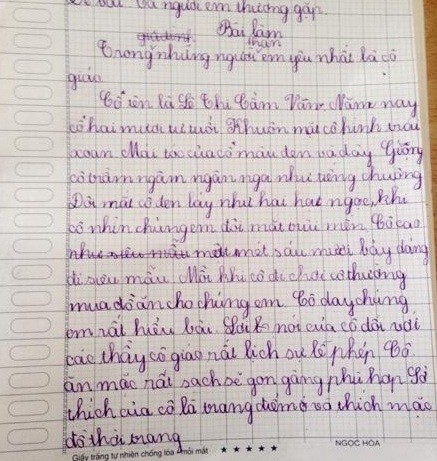 và người em thường gặp.
Bài làm
Trong những người thân em yêu nhất là cô
giáo
Cô tên là Lê Thị Cẩm Vân. Năm nay
cô hai mươi tư tuổi Khuôn mặt cô hình trái
xoan Mái tóc của cô màu đen và dày Giọng
cô trầm ngâm ngân nga như tiếng chuông
Đôi mắt cô đen lay như hai hạt ngọc, khi
cô nhìn chúng em đôi mắt trìu mến. Cô cao
một mét sáu mươi bảy dáng
đi siêu mẫu Mỗi khi cô đi chơi cô thường
mua đồ ăn cho chúng em. Cô dạy chúng
em rất hiểu bài. nói của cô đối với
các thầy cô giáo rất lịch sự lễ phép Cô
ăn mặc rất sạch sẽ gọn gàng phù hợp Sở
thích của cô là trang điểm và thích mặc
đồ thời trang
Giấy trắng tự nhiên chống lóa - mỏi mắt ★ ★ ★ ★ ★ NGỌC HÒA